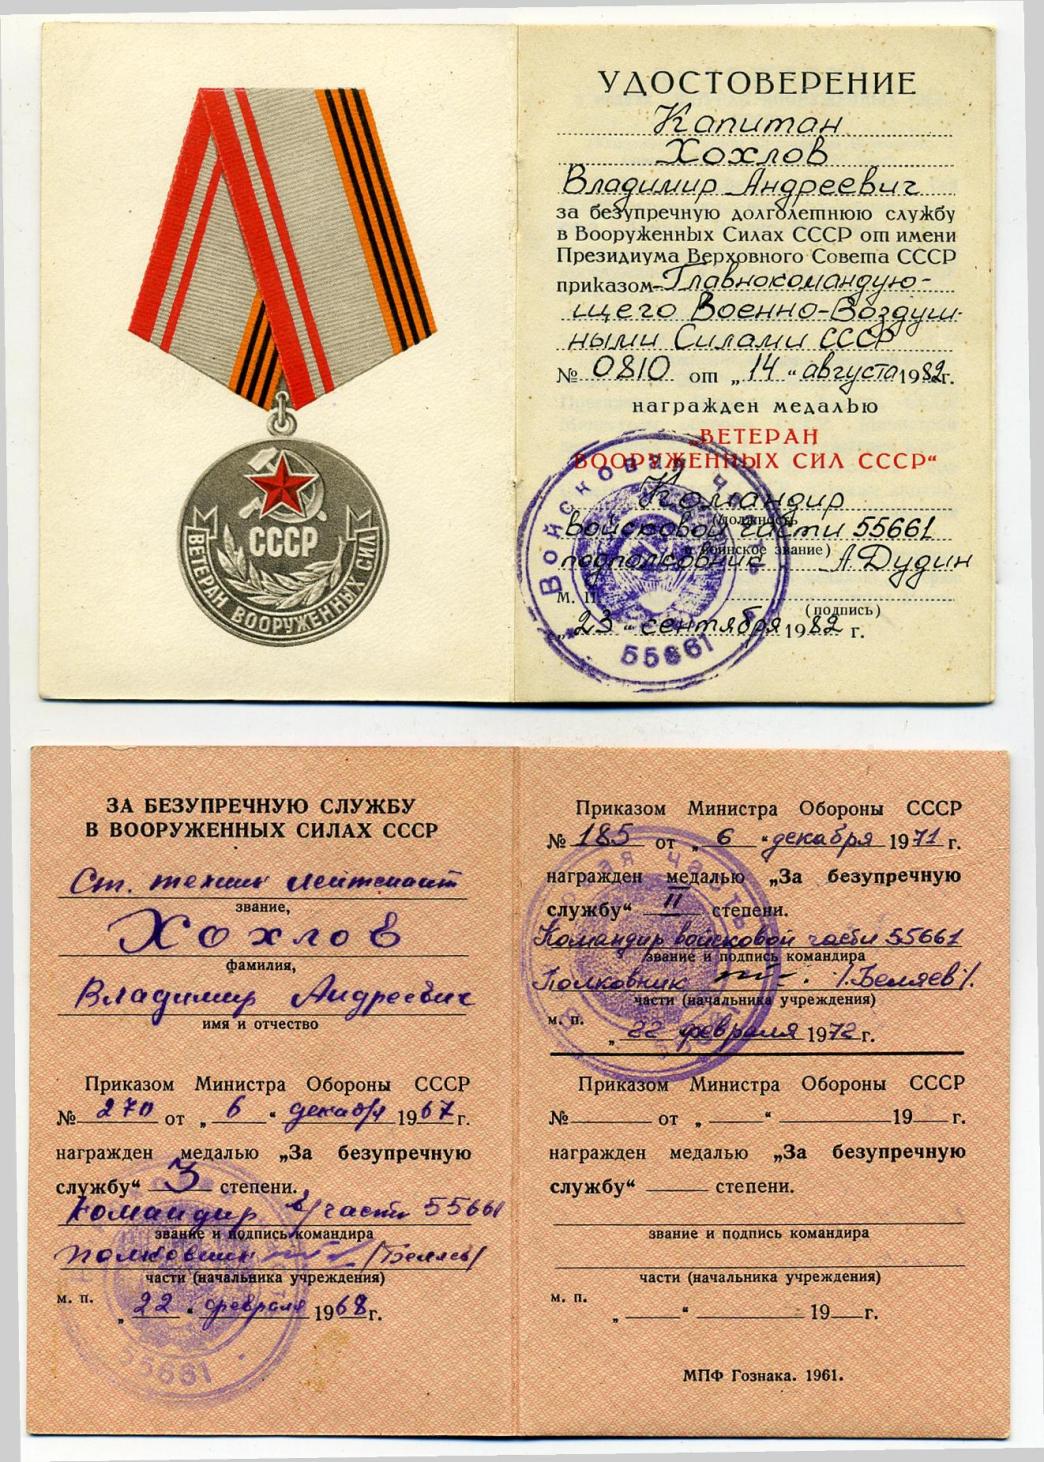 СССР
ВЕТЕРАН ВООРУЖЕННЫХ СИЛ
УДОСТОВЕРЕНИЕ
Капитан
Хохлов
Владимир Андреевич
за безупречную долголетнюю службу
в Вооруженных Силах СССР от имени
Президиума Верховного Совета СССР
приказом Главнокомандую-
щего Военно-Воздуш-
ными Силами СССР
№ 0810 от „14“ августа 1982г.
награжден медалью
„ВЕТЕРАН
ВООРУЖЕННЫХ СИЛ СССР“
Командир
(должность
войсковой части 55661
воинское звание)
подполковник А Дудин
М. П.
(подпись)
„23“ сентября 1982 г.
Войсковая часть
55661
ЗА БЕЗУПРЕЧНУЮ СЛУЖБУ
В ВООРУЖЕННЫХ СИЛАХ СССР
Ст. техник лейтенант
звание,
Хохлов
фамилия,
Владимир Андреевич
имя и отчество
Приказом Министра Обороны СССР
№ 270 от „6“ декабря 1967г.
награжден медалью „За безупречную
службу“ 3 степени.
Командир в/части 55661
звание и подпись командира
полковник /Беляев/
части (начальника учреждения)
м. п.
„22“ февраля 1968г.
55661
Приказом Министра Обороны СССР
№ 185 от „6“ декабря 1971г.
награжден медалью „За безупречную
службу“ II степени.
Командир войсковой части 55661
звание и подпись командира
Полковник /.Беляев/.
части (начальника учреждения)
м. п.
„22 февраля 1972г.
Приказом Министра Обороны СССР
№ от „ “ 19 г.
награжден медалью „За безупречную
службу“ степени.
звание и подпись командира
части (начальника учреждения)
м. п.
„ “ 19 г.
МПФ Гознака. 1961.